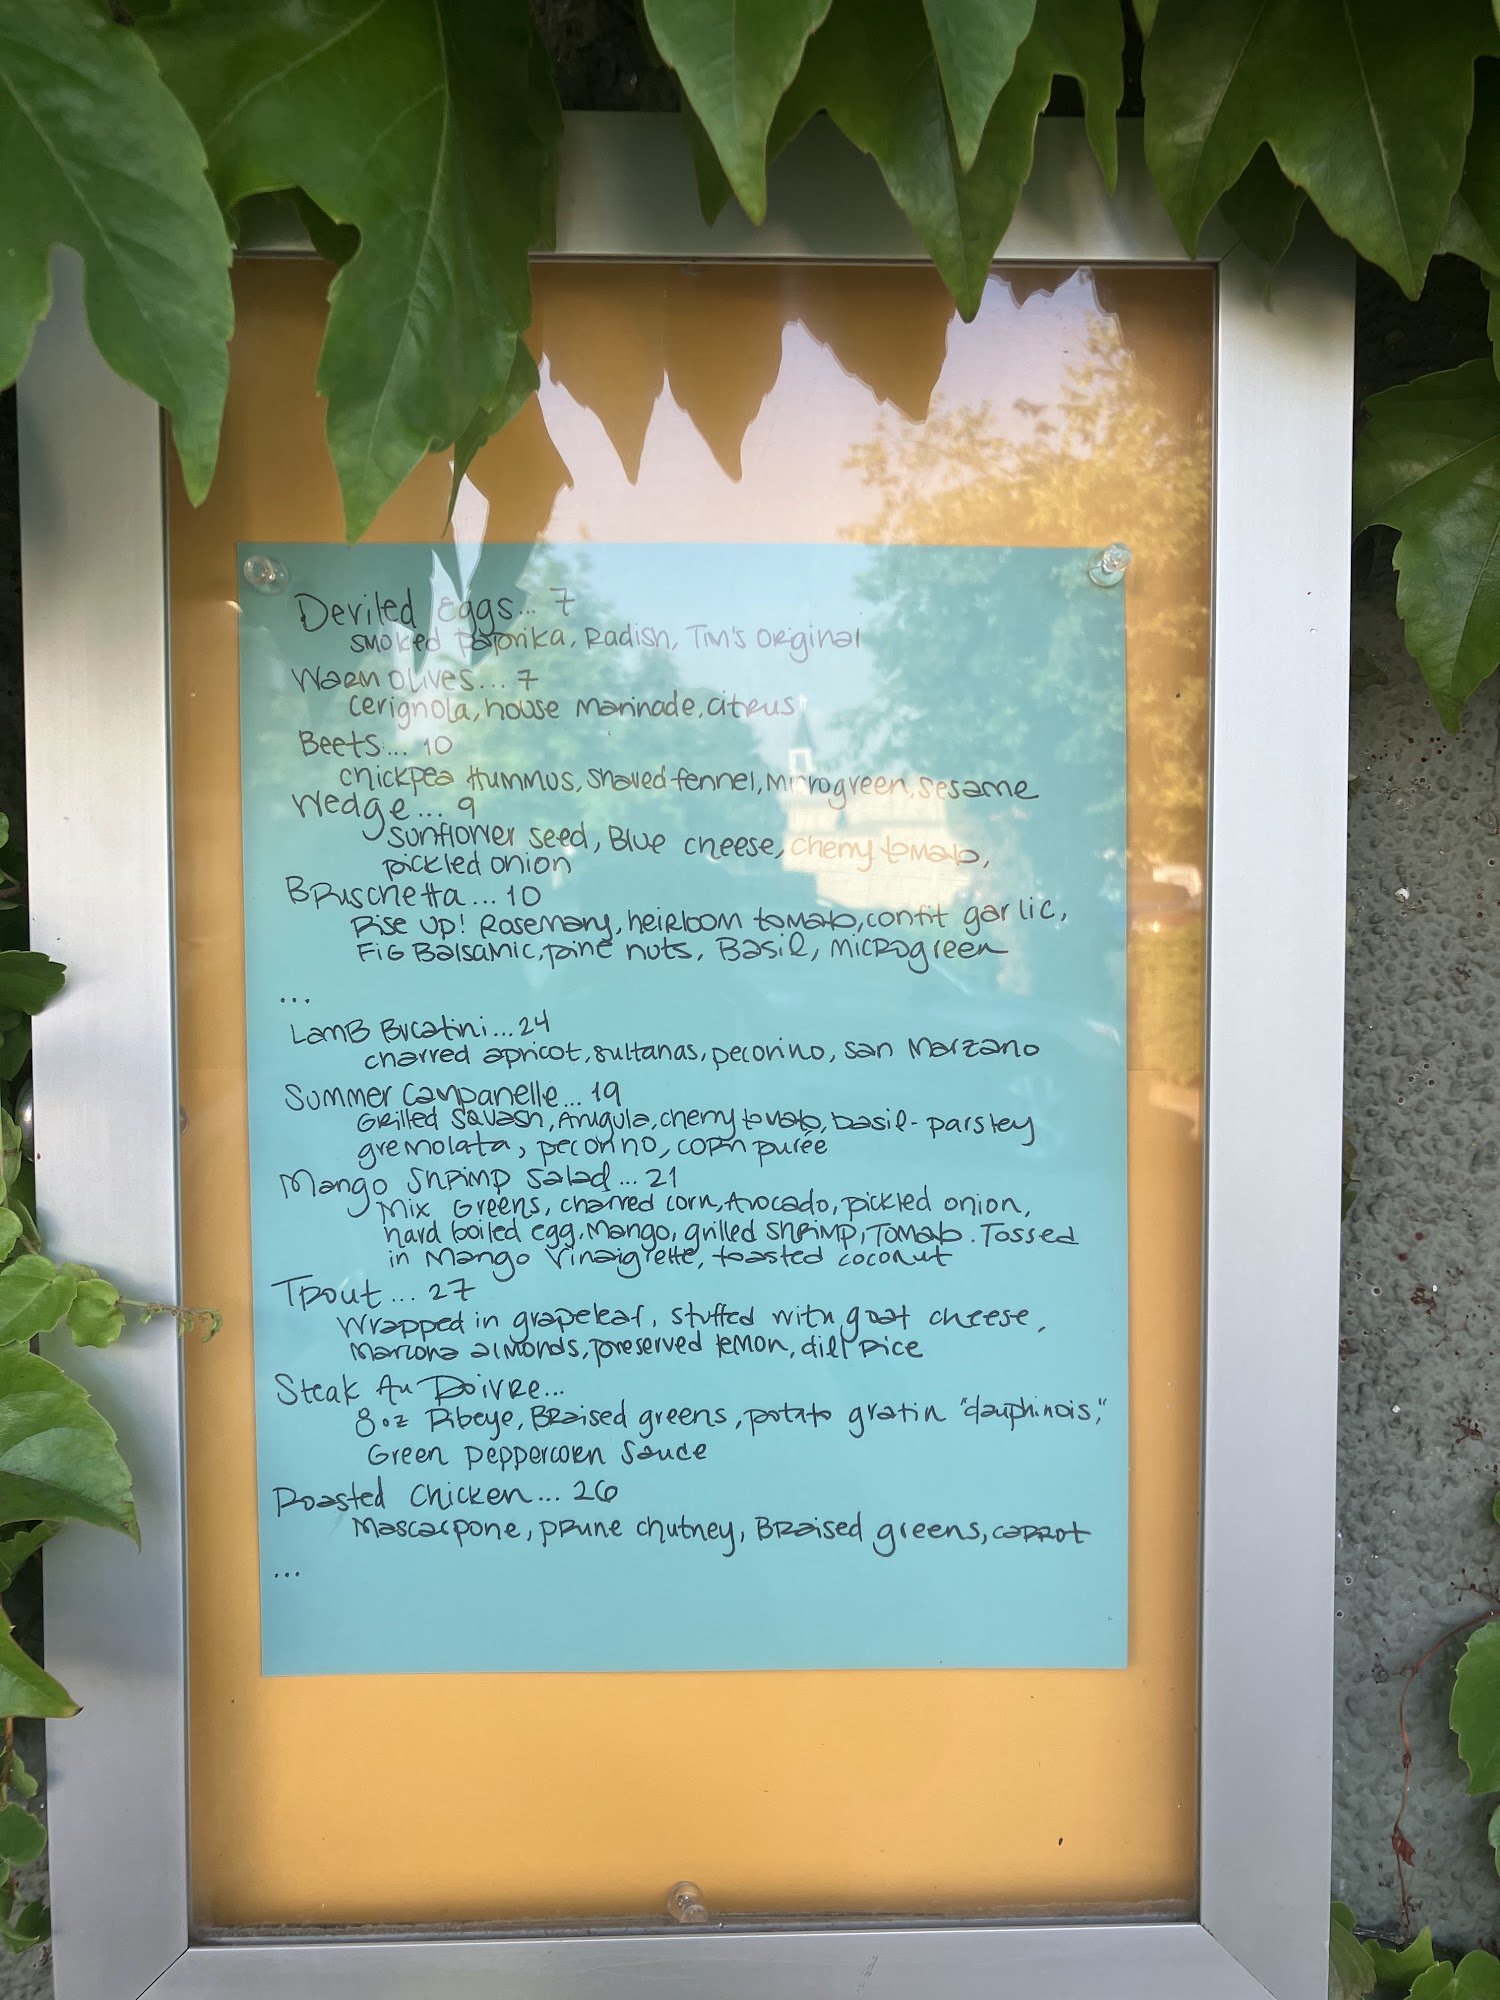 Deviled eggs... 7
smoked paprika, Radish, Tim's original
Warm olives... 7
cerignola, house marinade, citrus
Beets... 10
chickpea Hummus, shaved fennel, microgreen, sesame
Wedge... 9
sunflower seed, Blue cheese, cherry tomato,
pickled onion
Bruschetta... 10
Rise Up! Rosemary, heirloom tomato, confit garlic,
Fig Balsamic, pine nuts, Basil, microgreen
...
Lamb Bucatini... 24
charred apricot, sultanas, pecorino, San Marzano
Summer Campanelle... 19
Grilled Squash, Arugula, cherry tomato, basil-parsley
gremolata, pecorino, corn purée
Mango Shrimp Salad... 21
Mix Greens, charred corn, Avocado, pickled onion,
hard boiled egg, Mango, grilled shrimp, Tomato. Tossed
in Mango Vinaigrette, toasted coconut
Trout... 27
Wrapped in grapeleaf, stuffed with goat cheese,
Marcona almonds, preserved lemon, dill rice
Steak Au Poivre...
8oz Ribeye, Braised greens, potato gratin "dauphinois,"
Green peppercorn sauce
Roasted Chicken... 26
Mascarpone, prune chutney, Braised greens, carrot
...